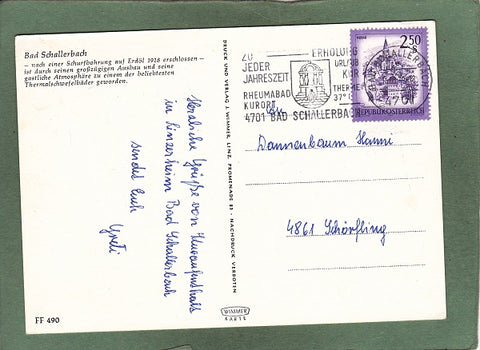 Bad Schallerbach
– nach einer Schurfbohrung auf Erdöl 1918 erschlossen –
ist durch seinen großzügigen Ausbau und seine
gastliche Atmosphäre zu einem der beliebtesten
Thermalschwefelbäder geworden.
Herzliche Grüße von
in Linzerheim Bad Schallerbach
sendet Euch
Greti
FF 490
DRUCK UND VERLAG J. WIMMER, LINZ, PROMENADE 23 - NACHDRUCK VERBOTEN
WIMMER
ZU
JEDER
JAHRESZEIT
RHEUMABAD
KURORT
4701 BAD SCHALLERBACH
ERHOLUNG
URLAUB
KUR
37°
2.50
REPUBLIK ÖSTERREICH
4701
Dannenbaum Hanni
4861 Schörfling